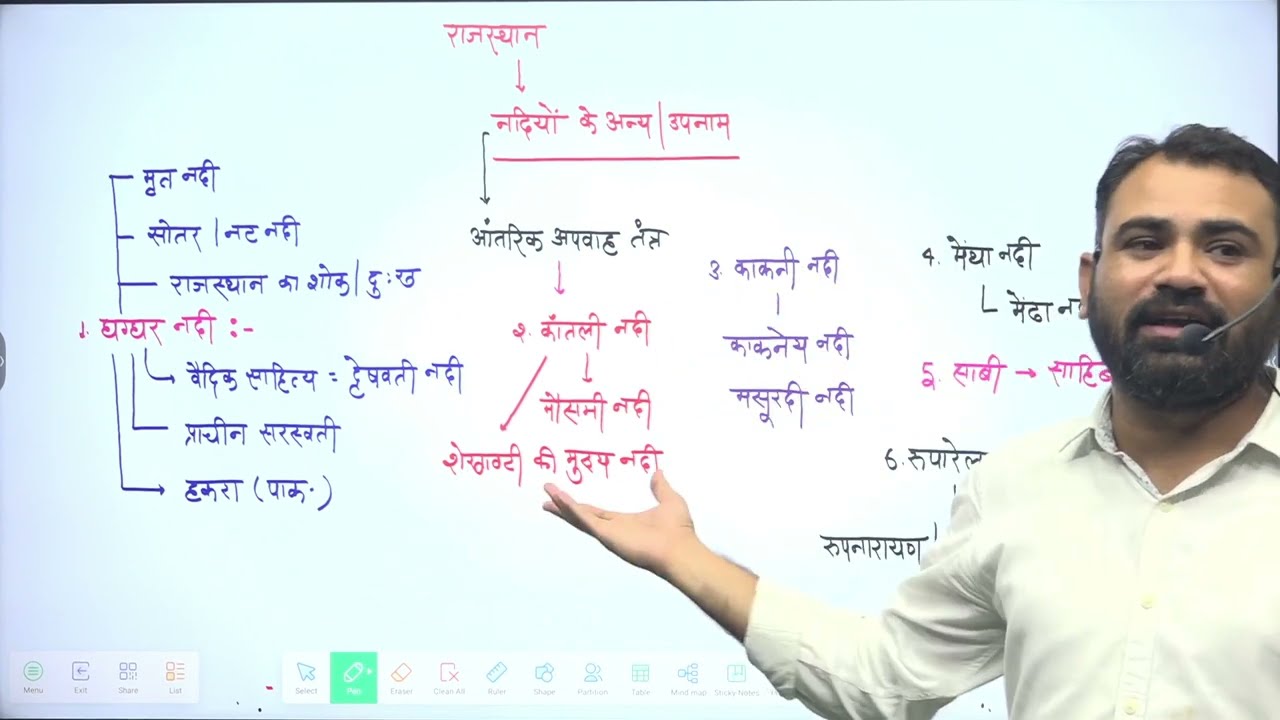 राजस्थान
नदियों के अन्य/उपनाम
मृत नदी
सोतर/नट नदी
राजस्थान का शोक/दुःख
1. घग्घर नदी :-
वैदिक साहित्य = द्वेषवती नदी
प्राचीन सरस्वती
हकरा (पाक.)
आंतरिक अपवाह तंत्र
2. कांतली नदी
मौसमी नदी
शेखावटी की मुख्य नदी
3. काकनी नदी
काकनेय नदी
मसूरदी नदी
4. मेंथा नदी
मेंढा
5. साबी → साहिब
6. रूपारेल
रुपनारायण
Menu
Exit
Share
List
Select
Pen
Eraser
Clean All
Ruler
Shape
Partition
Table
Mind map
Sticky-Notes